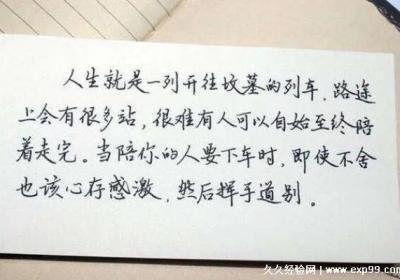 人生就是一列开往坟墓的列车,路途
上会有很多站,很难有人可以自始至终陪
着走完。当陪你的人要下车时,即使不舍
也该心存感激,然后挥手道别。
久久经验网 | www.exp99.com